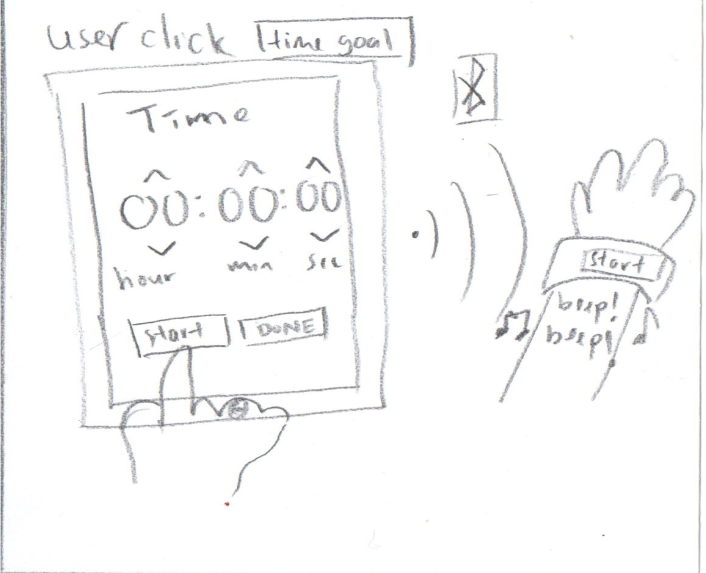 user click time goal
Time
00:00:00
hour min sec
start DONE
start
beep!
beep!